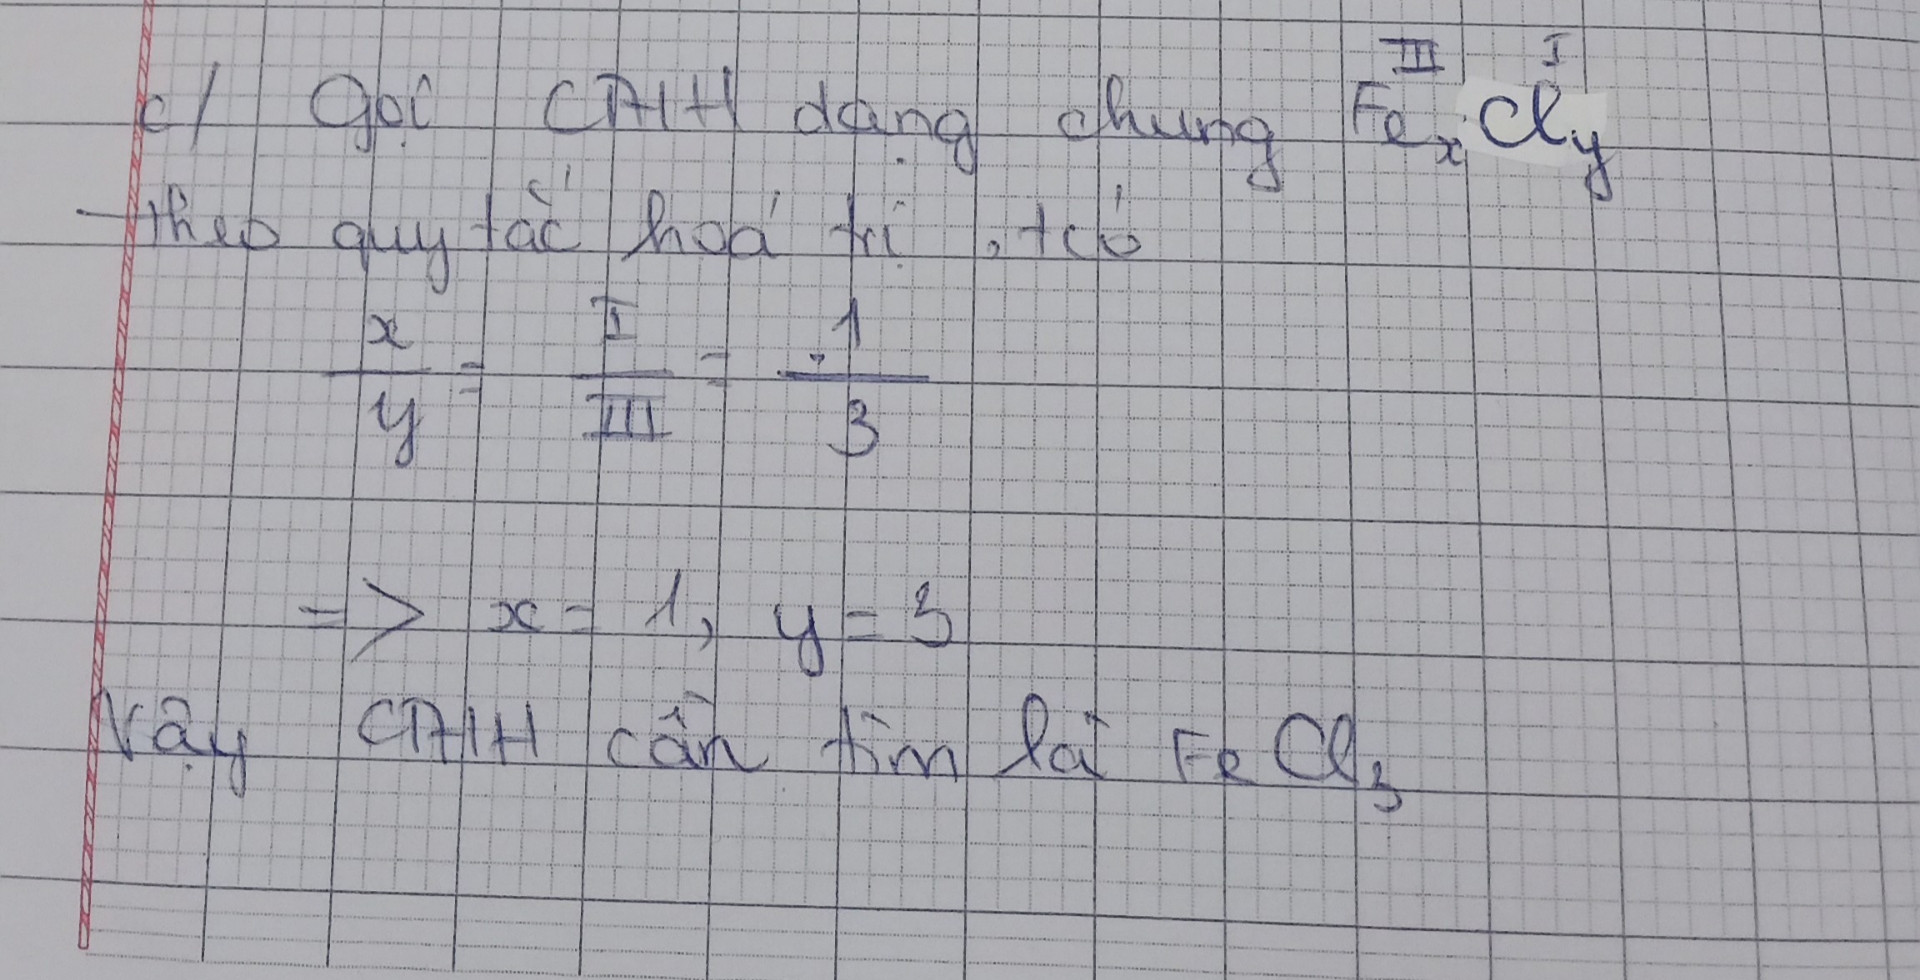 III I
c/ Gọi CTHH dạng chung FexCly
Theo quy tắc hoá trị, tcó
x/y = I/III = 1/3
=> x = 1, y = 3
Vậy CTHH cần tìm là FeCl3